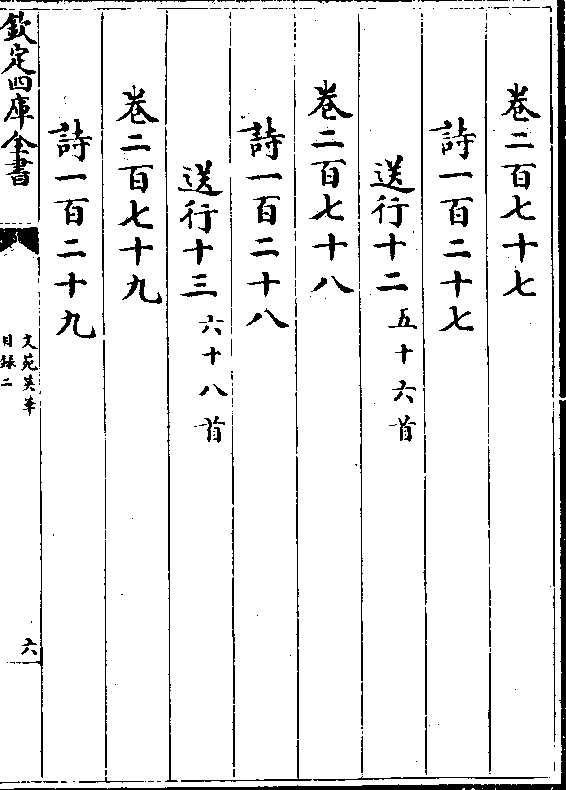 卷二百七十七
詩一百二十七
送行十二五十六首
卷二百七十八
詩一百二十八
送行十三六十八首
卷二百七十九
詩一百二十九
欽定四庫全書
文苑英華
目録二
六